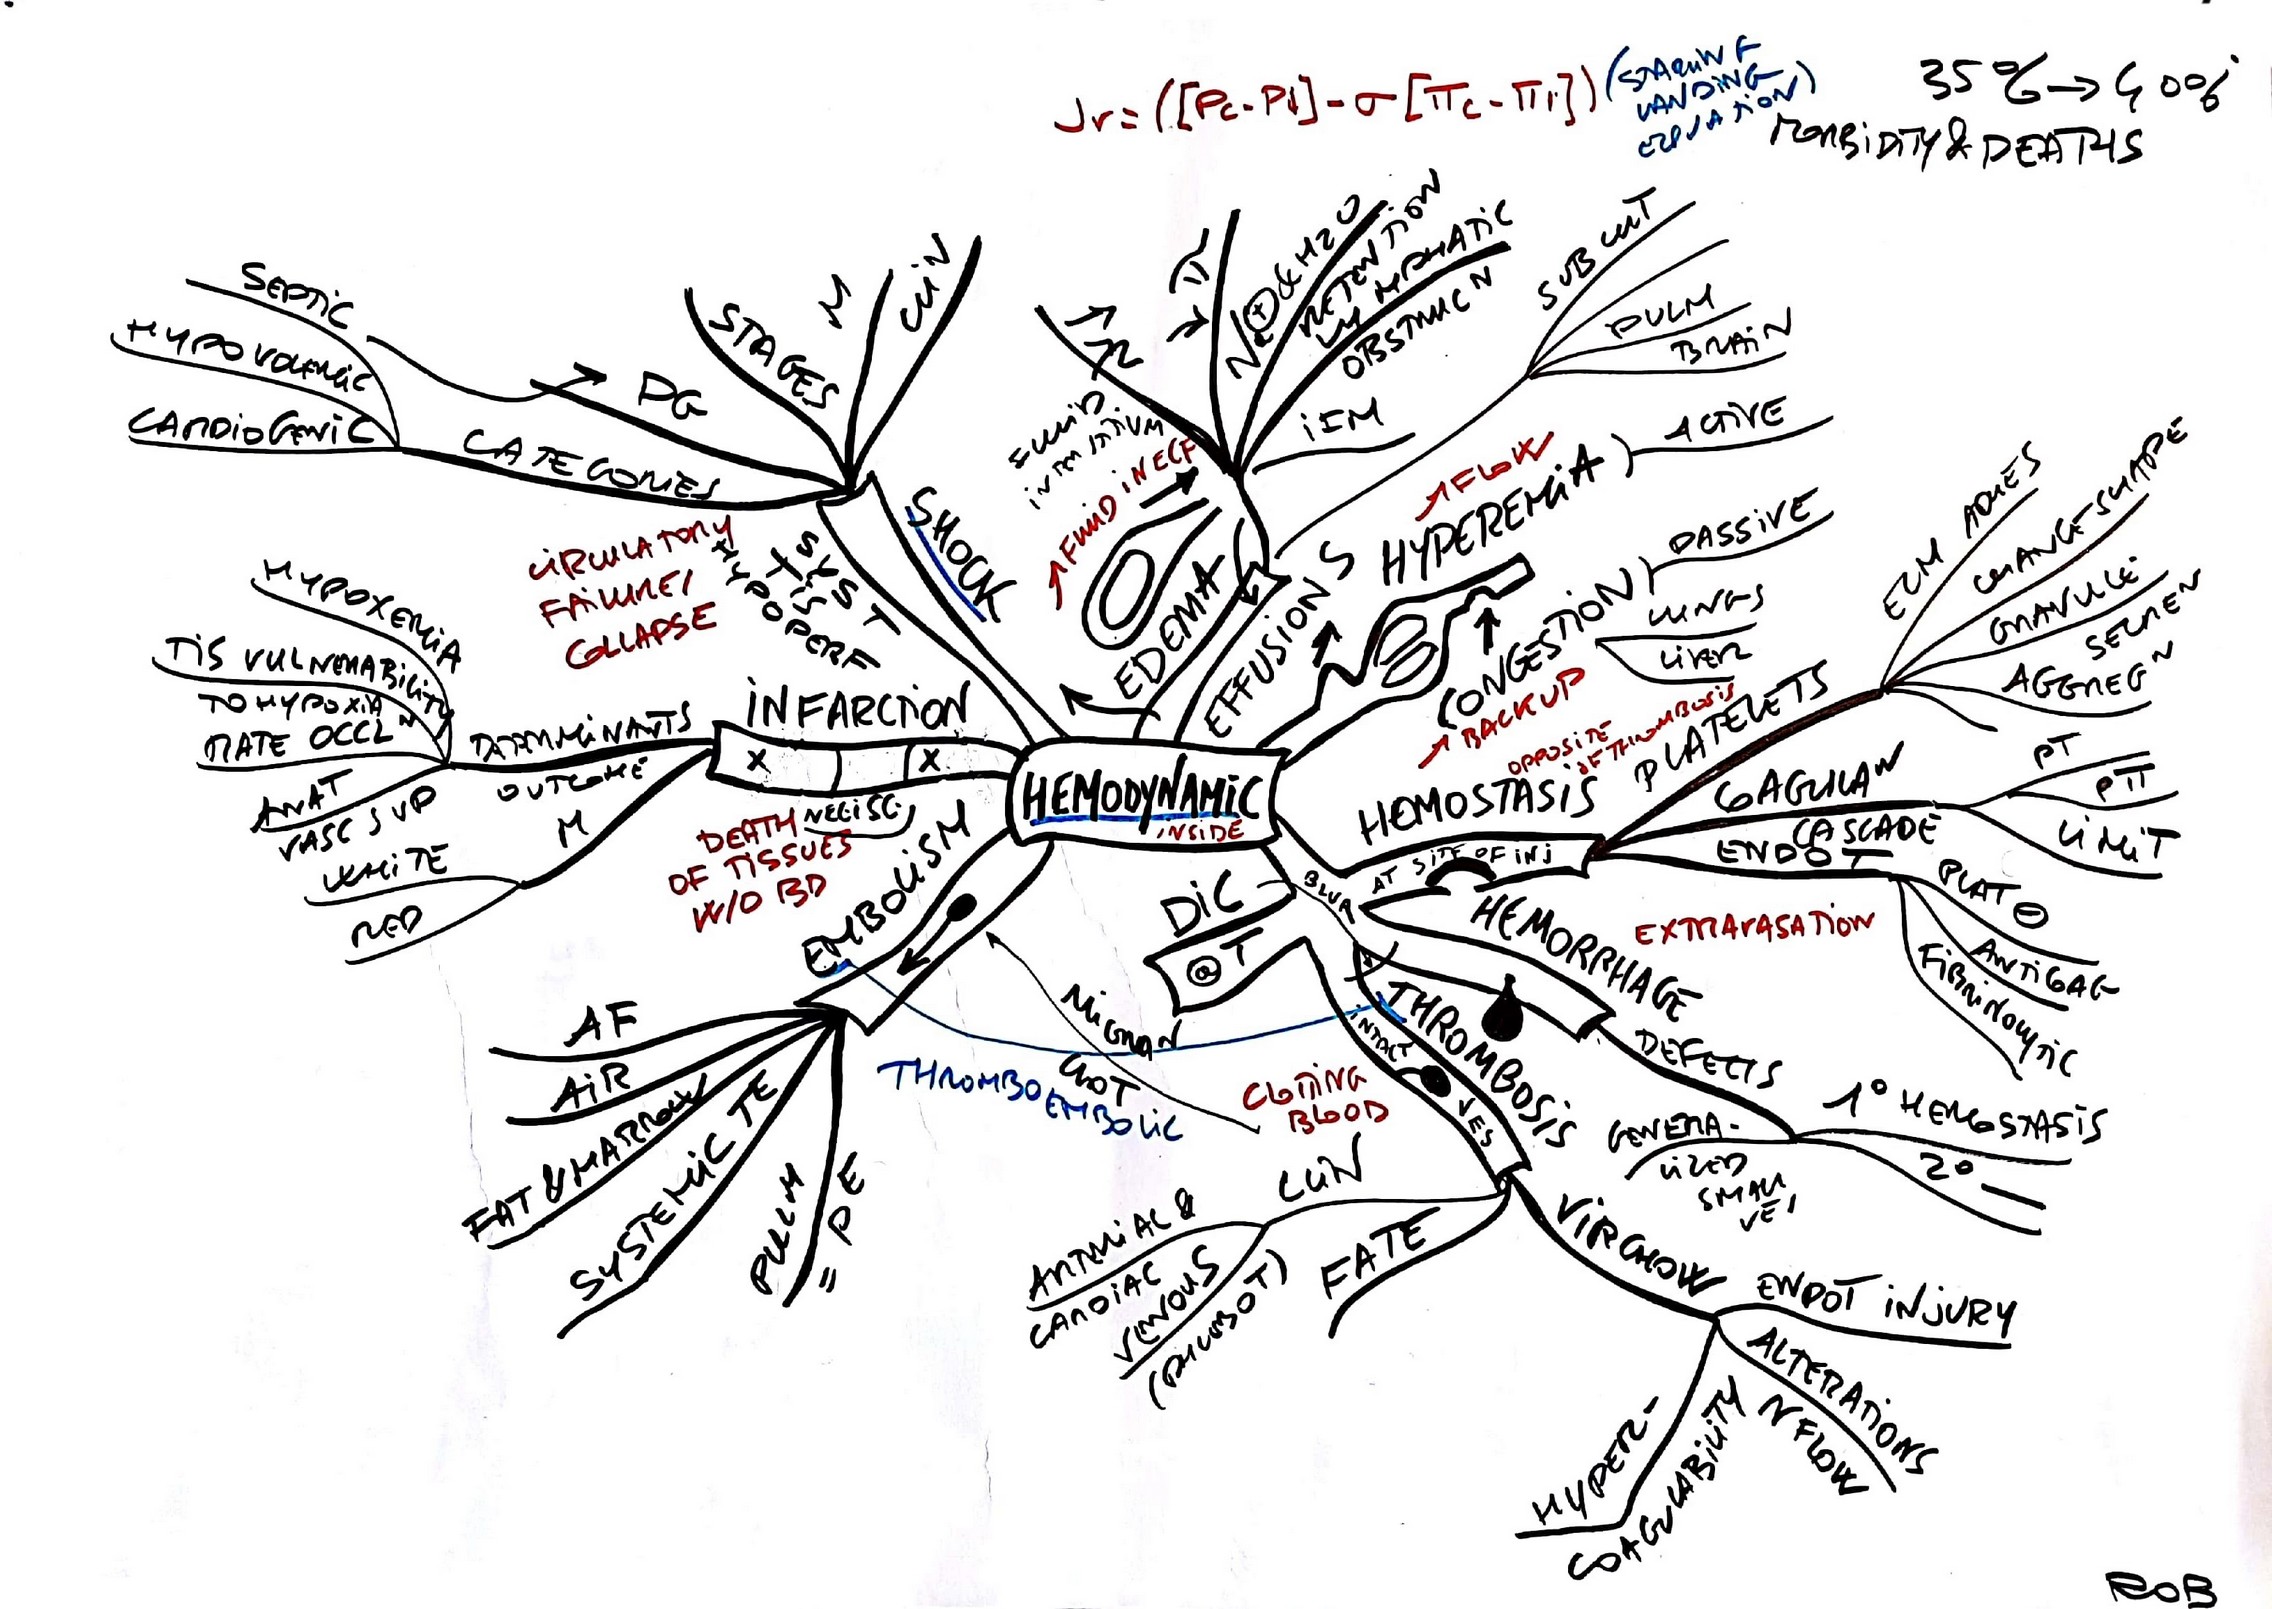 Jv = ([Pc - Pi] - σ [πc - πi])
(STARLING
LANDING
EQUATION)
35% → 400%
MORBIDITY & DEATHS
HEMODYNAMIC
INSIDE
EDEMA
↑ FLUID IN ECF
FLUID
INTERSTITIUM
↓ π
Na⊕ & H2O
RETENTION
LYMPHATIC
OBSTRUCN
EFFUSIONS
SUBCUT
PULM
BRAIN
HYPEREMIA
↗ FLOW
ACTIVE
CONGESTION
↗ BACKUP
PASSIVE
LUNGS
LIVER
HEMOSTASIS
OPPOSITE
OF THROMBOSIS
AT SITE OF INJ
PLATELETS
ECM ADHES
CHANGE SHAPE
GRANULE
SECREN
AGGREG N
COAGULAN
CASCADE
PT
PTT
LIMIT
ENDOT
PLAT ⊖
ANTICOAG
FIBRINOLYTIC
HEMORRHAGE
EXTRAVASATION
DEFECTS
1° HEMOSTASIS
2° —
GENERA-
LIZED
SMALL
VES
THROMBOSIS
INTACT
VES
CLOTTING
BLOOD
VIRCHOW
ENDOT INJURY
ALTERATIONS
N FLOW
HYPER-
COAGULABILITY
FATE
CLIN
ARTERIAL &
CARDIAC
VENOUS
(PHLEBOT)
DIC
@ T
EMBOLISM
MIGRAN
CLOT
THROMBO EMBOLIC
AF
AIR
FAT & MARROW
SYSTEMIC TE
PULM
= PE
INFARCTION
X
X
DEATH
OF TISSUES
W/O BD
DETERMINANTS
OUTCOME
HYPOXEMIA
TIS VULNERABILITY
TO HYPOXIA
RATE OCCL N
ANAT
VASC SUP
M
WHITE
RED
SHOCK
SYST
TIS
HYPOPERF
CIRCULATORY
FAILURE/
COLLAPSE
CATEGORIES
SEPTIC
HYPOVOLEMIC
CARDIOGENIC
→ PG
STAGES
M
CLIN
ROB